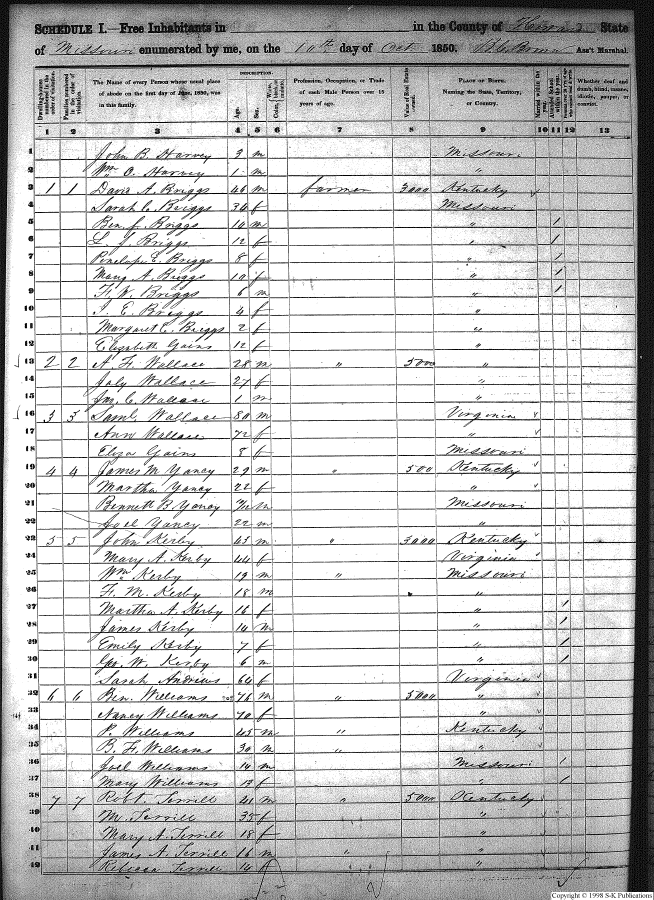 SCHEDULE I.—Free Inhabitants in in the County of State
of Missouri enumerated by me, on the 10th day of Oct 1850. Ass't Marshal.
Dwelling-houses numbered in the order of visitation.
Families numbered in the order of visitation.
The Name of every Person whose usual place of abode on the first day of June, 1850, was in this family.
DESCRIPTION.
Age.
Sex.
Color, White, black, or mulatto.
Profession, Occupation, or Trade of each Male Person over 15 years of age.
Value of Real Estate owned.
PLACE OF BIRTH. Naming the State, Territory, or Country.
Married within the year.
Attended School within the year.
Whether deaf and dumb, blind, insane, idiotic, pauper, or convict.
1 2 3 4 5 6 7 8 9 10 11 12 13
1 John B. Harvey 3 m Missouri
2 Wm O. Harvey 1 m "
3 1 1 David A. Briggs 46 m farmer 3000 Kentucky
4 Sarah C. Briggs 34 f Missouri
5 Ben. f. Briggs 14 m " 1
6 L. J. Briggs 12 f " 1
7 Penelope E. Briggs 8 f " 1
8 Mary A. Briggs 10 f " 1
9 F. W. Briggs 6 m " 1
10 E. Briggs 4 f "
11 Margaret C. Briggs 2 f "
12 Elizabeth Gains 12 f "
13 2 2 A. F. Wallace 28 m " 5000 "
14 Wallace 27 f "
15 Jas. C. Wallace 1 m "
16 3 3 Saml. Wallace 80 m Virginia
17 Ann Wallace 72 f "
18 Eliza Gains 8 f Missouri
19 4 4 James M. Yancy 29 m " 500 Kentucky
20 Martha Yancy 22 f "
21 Bennett B. Yancy m Missouri
22 Joel Yancy 22 m "
23 5 5 John Kerby 45 m " 3000 Kentucky
24 Mary A. Kerby 44 f Virginia
25 Wm Kerby 19 m " Missouri
26 F. M. Kerby 18 m "
27 Martha A. Kerby 16 f " 1
28 James Kerby 14 m " 1
29 Emily Kerby 7 f " 1
30 Geo. W. Kerby 6 m " 1
31 Sarah Andrews 64 f Virginia
32 6 6 Ben. Williams 76 m " 5000 "
33 Nancy Williams 70 f "
34 P. Williams 45 m " Kentucky
35 B. F. Williams 30 m " "
36 Joel Williams 14 m Missouri 1
37 Mary Williams 13 f " 1
38 7 7 Robt. Terrill 41 m " 5000 Kentucky
39 M. Terrill 35 f "
40 Mary A. Terrill 18 f "
41 James A. Terrill 16 m " "
42 Rebecca Terrill 14 f "
Copyright © 1998 S-K Publications